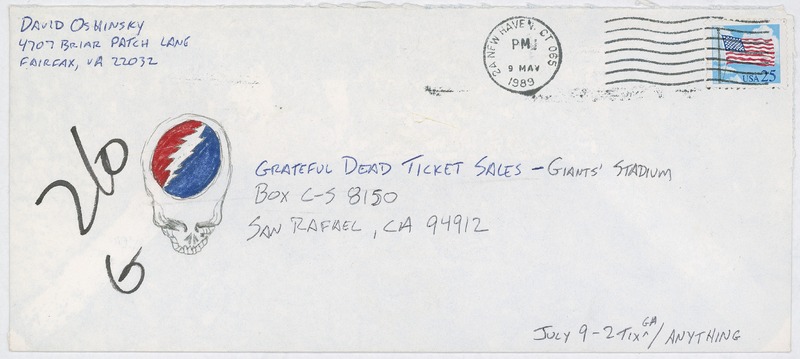 David Oshinsky
4707 Briar Patch Lane
Fairfax, VA 22032
2A NEW HAVEN, CT 065
PM
9 MAY
1989
USA 25
260
G
Grateful Dead Ticket Sales – Giants' Stadium
Box C-S 8150
San Rafael, CA 94912
July 9 – 2 Tix ^ GA / Anything